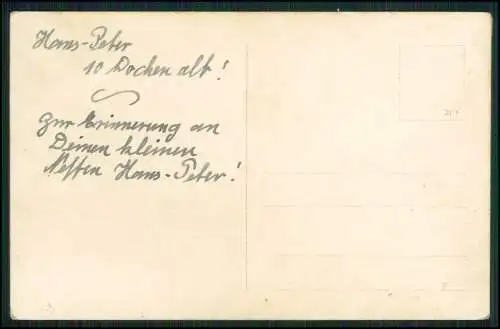 Hans-Peter
10 Wochen alt!
Zur Erinnerung an
Deinen kleinen
Neffen Hans-Peter!